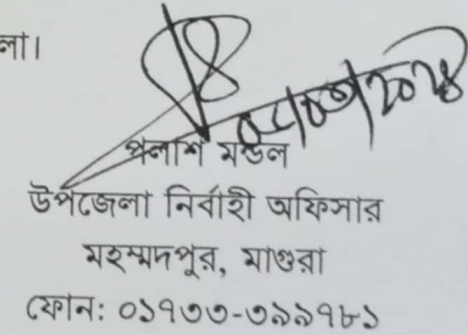 লা।
পলাশ মন্ডল
উপজেলা নির্বাহী অফিসার
মহম্মদপুর, মাগুরা
ফোন: ০১৭৩৩-৩৯৯৭৮১